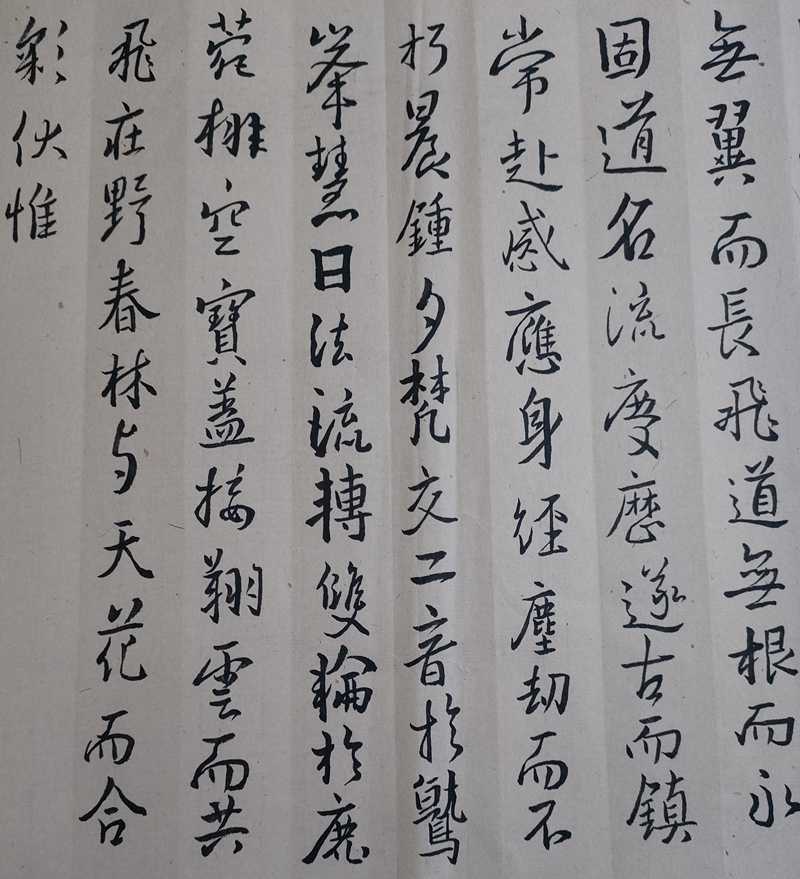 無翼而長飛道無根而永
固道名流慶歷遂古而鎮
常赴感應身經塵劫而不
朽晨鍾夕梵交二音於鷲
峯慧日法流轉雙輪於鹿
菀排空寶蓋接翔雲而共
飛莊野春林与天花而合
彩伏惟